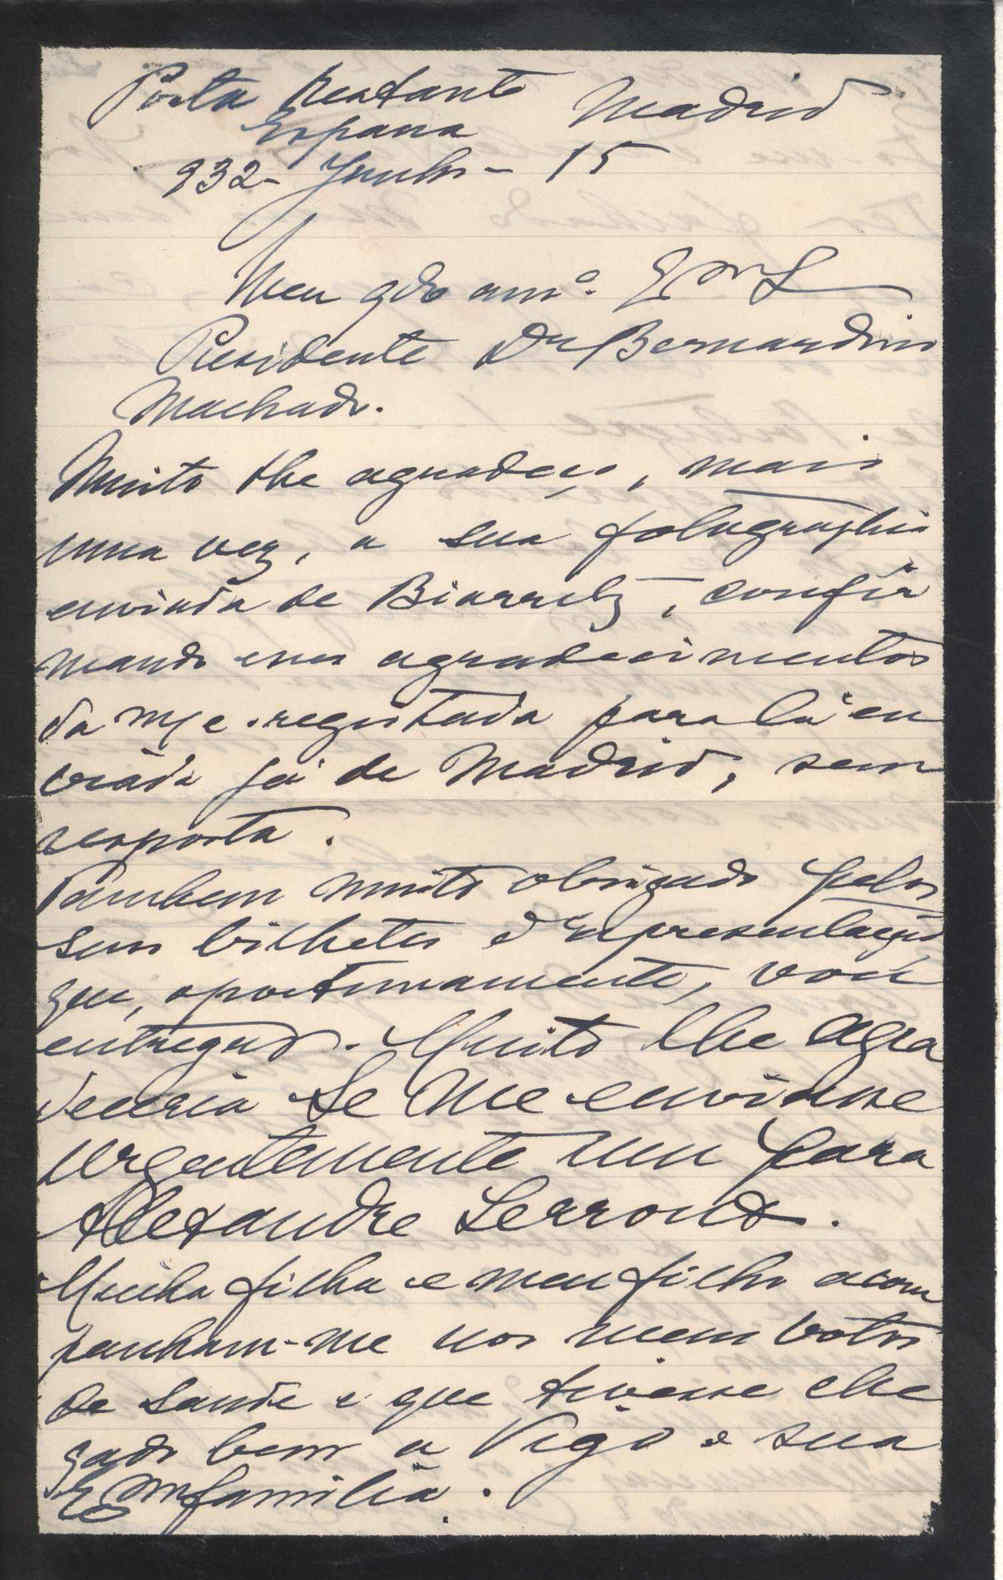 Posta Restante Madrid
España
932 - Junho - 15
Meu gdo amº. Exmo
Presidente Dr Bernardino
Machado.
Muito lhe agradeço, mais
uma vez, a sua fotographia
enviada de Biarritz, confir
mando meus agradecimentos
da m/c. registada para lá en
viada já de Madrid, sem
resposta.
Tambem muito obrigado pelos
seus bilhetes d'apresentação
que, oportunamente, vou
entregar. Muito lhe agra
deceria se me enviasse
urgentemente um para
Alexandre Lerroux.
Minha filha e meu filho acom
panham-me nos meus votos
de saude e que tivesse che
gado bem a Vigo e sua
Exma familia.